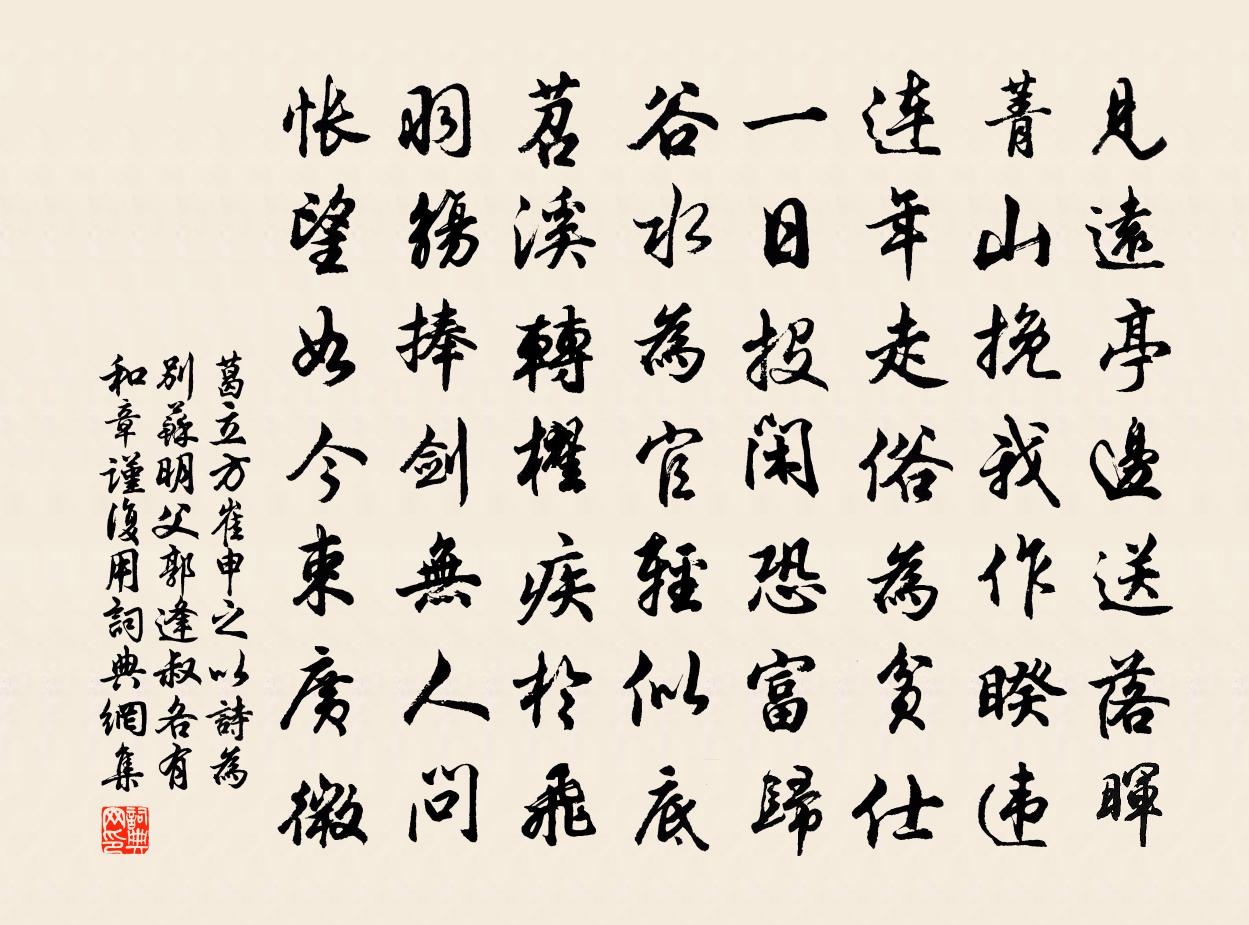 見遠亭邊送落暉
菁山挽我作睽違
連年走俗為貧仕
一日投閑恐富歸
谷水為官輕似底
苕溪轉櫂疾於飛
羽觴捧劍無人問
悵望如今束廣微
葛立方崔申之以詩為
別蘇明父郭逢叔各有
和章謹復用詞典網集
詞典网印